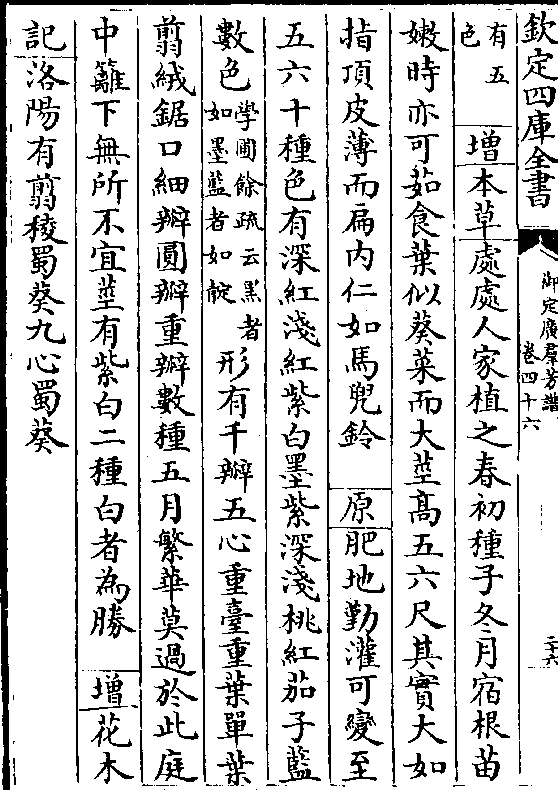 欽定四庫全書
御定廣羣芳譜
卷四十六
二十六
有五
色
增本草處處人家植之春初種子冬月宿根苗
嫩時亦可茹食葉似葵菜而大莖高五六尺其實大如
指頂皮薄而扁內仁如馬兜鈴 原肥地勤灌可變至
五六十種色有深紅淺紅紫白墨紫深淺桃紅茄子藍
數色學圃餘疏云黑者
如墨藍者如靛
形有千瓣五心重臺重葉單葉
翦絨鋸口細瓣圓瓣重瓣數種五月繁華莫過於此庭
中籬下無所不宜莖有紫白二種白者為勝 增花木
記洛陽有翦稜蜀葵九心蜀葵